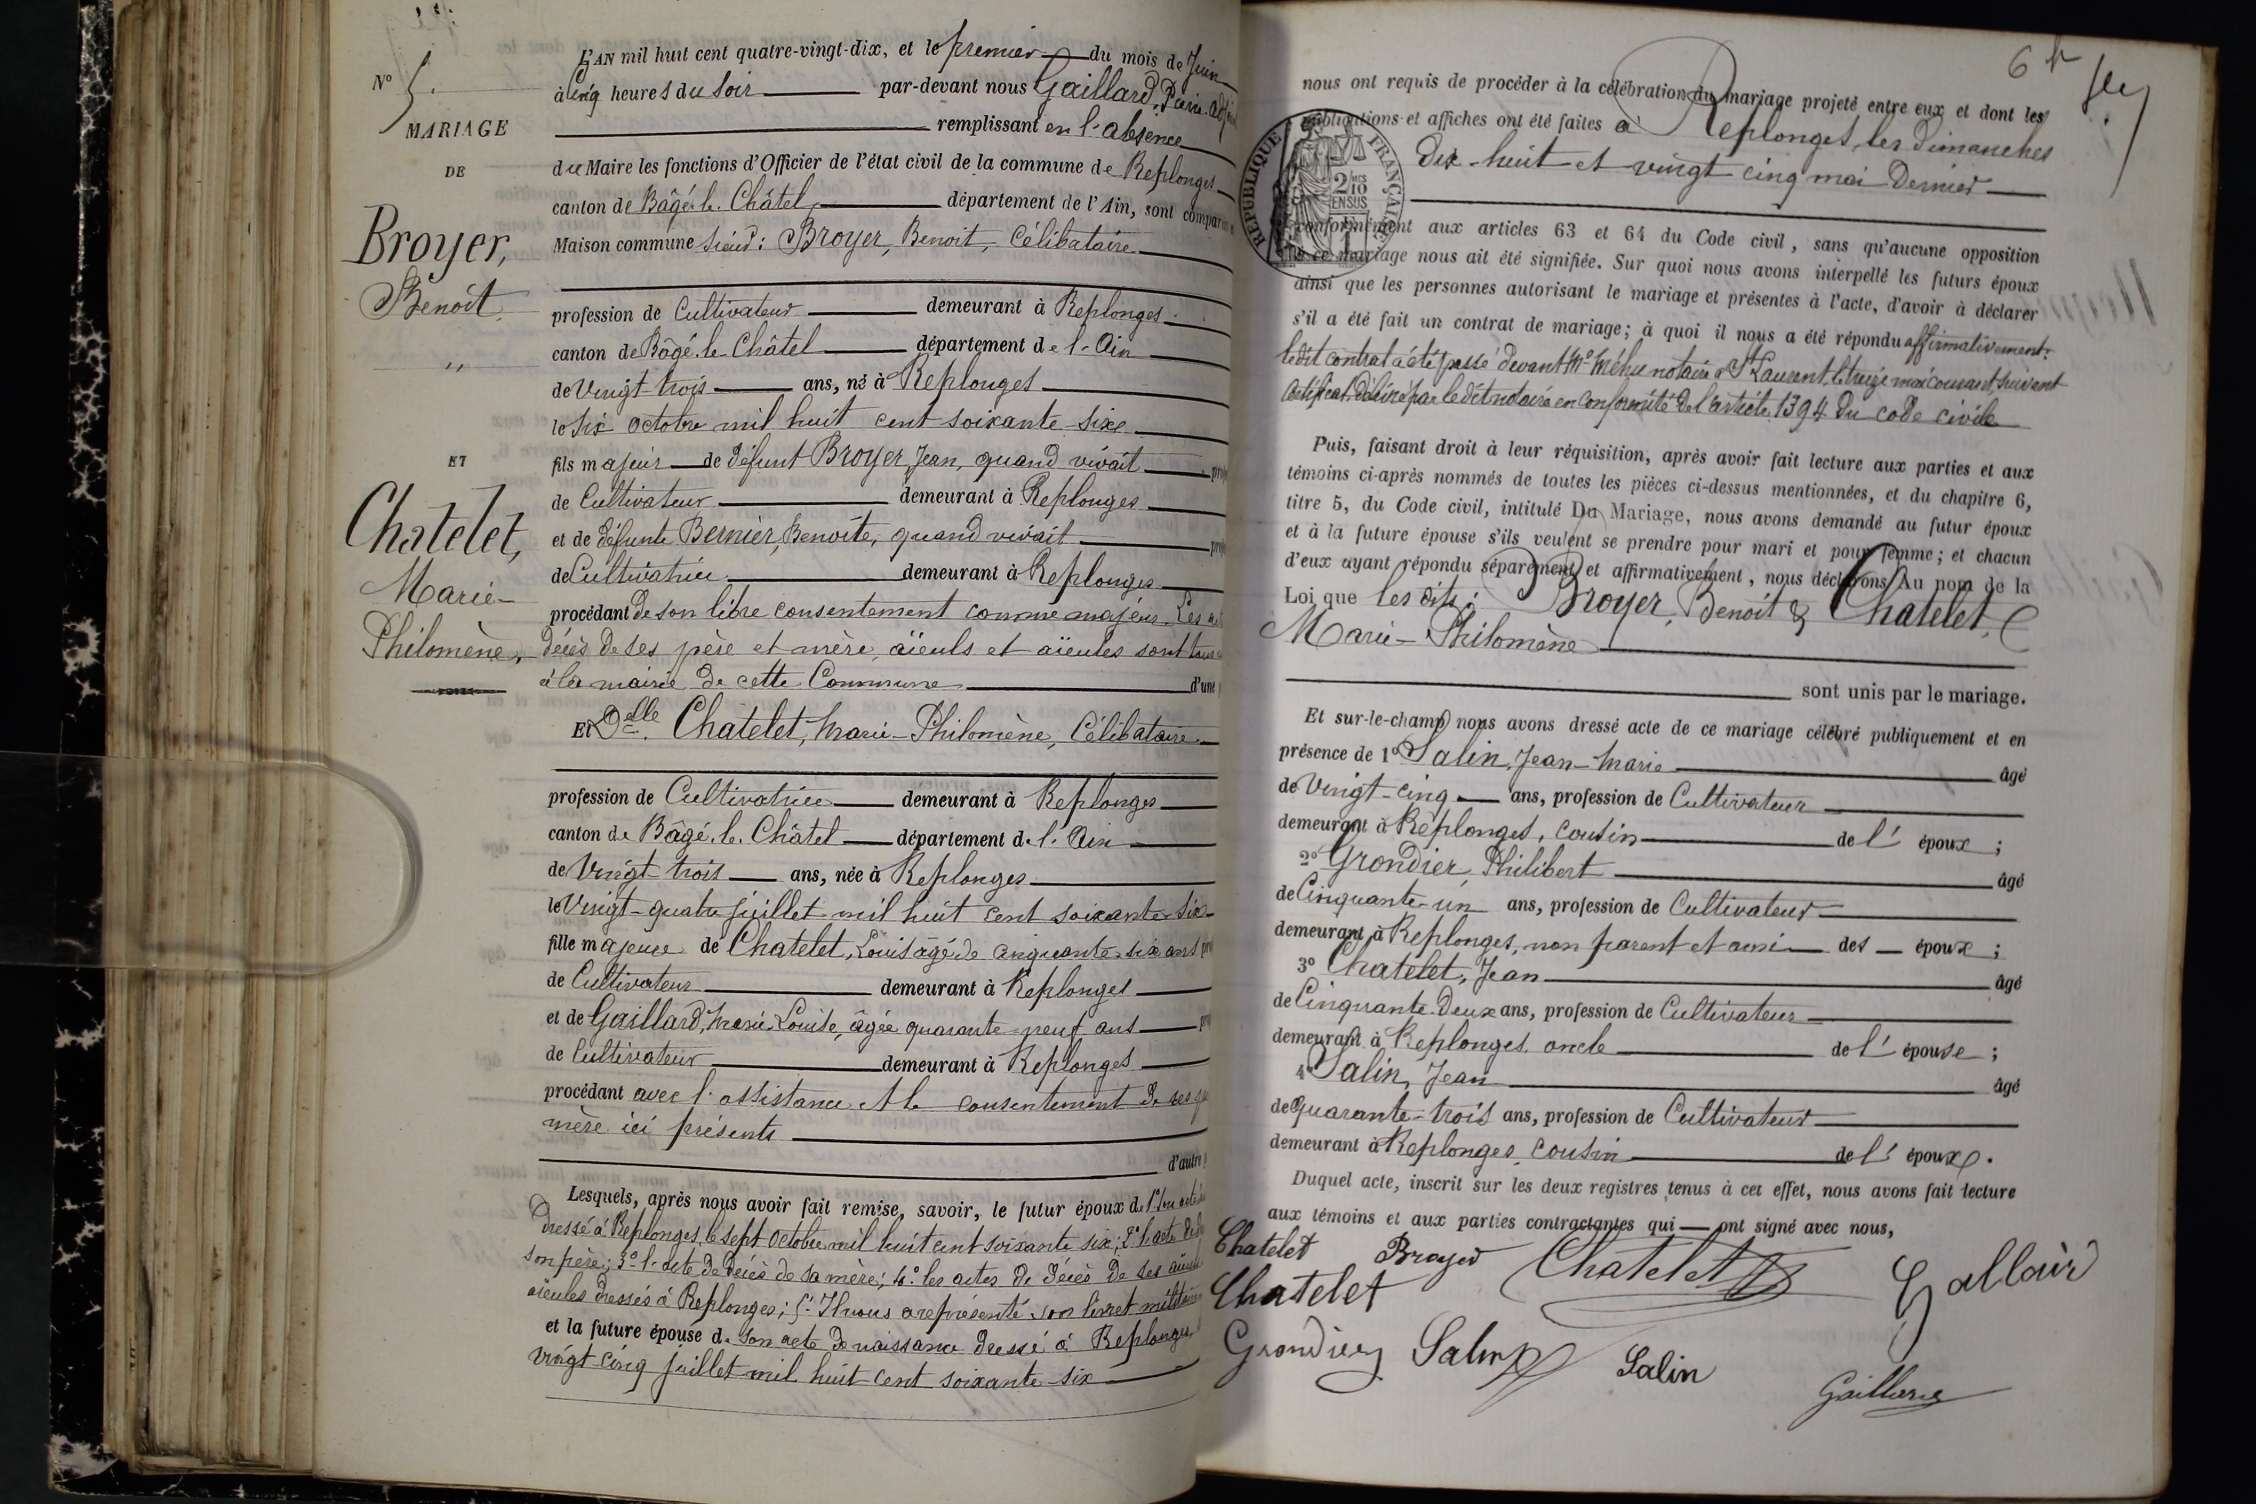 N° 5.
MARIAGE
DE
Broyer,
Benoit
"
ET
Chatelet,
Marie-
Philomène,
L'AN mil huit cent quatre-vingt-dix, et le premier du mois de Juin
à Cinq heures du soir par-devant nous Gaillard,
remplissant en l'absence
du Maire les fonctions d'Officier de l'état civil de la commune de Replonges
canton de Bâgé-le-Châtel, département de l'Ain, sont comparus
Maison commune sieur: Broyer, Benoit, Célibataire
profession de Cultivateur demeurant à Replonges
canton de Bâgé-le-Châtel département de l'Ain
de Vingt trois ans, né à Replonges
le six octobre mil huit cent soixante-six
fils majeur de défunt Broyer, Jean, quand vivait
de Cultivateur demeurant à Replonges
et de défunte Bernier, Benoîte, quand vivait
de Cultivatrice demeurant à Replonges
procédant de son libre consentement comme majeur. Les
décès de ses père et mère, aïeuls et aïeules sont tous
à la mairie de cette Commune d'une
Et Delle Chatelet, Marie-Philomène, Célibataire
profession de Cultivatrice demeurant à Replonges
canton de Bâgé-le-Châtel département de l'Ain
de Vingt trois ans, née à Replonges
le Vingt-quatre juillet mil huit cent soixante-six
fille majeure de Chatelet, Louis âgé de cinquante-six ans
de Cultivateur demeurant à Replonges
et de Gaillard, Marie-Louise, âgée quarante-neuf ans
de Cultivateur demeurant à Replonges
procédant avec l'assistance et le consentement de ses
mère ici présents
d'autre
Lesquels, après nous avoir fait remise, savoir, le futur époux de 1° son acte
dressé à Replonges, le sept octobre mil huit cent soixante six; 2° l'acte de
son père; 3° l'acte de décès de sa mère; 4° les actes de décès de ses aïeuls
aïeules dressés à Replonges; 5° Il nous a représenté son livret militaire
et la future épouse de son acte de naissance dressé à Replonges
vingt-cinq juillet mil huit cent soixante-six
6
nous ont requis de procéder à la célébration du mariage projeté entre eux et dont les
publications et affiches ont été faites à Replonges, les Dimanches
dix-huit et vingt cinq mai Dernier
RÉPUBLIQUE FRANÇAISE
2/10
EN SUS
conformément aux articles 63 et 64 du Code civil, sans qu'aucune opposition
à ce mariage nous ait été signifiée. Sur quoi nous avons interpellé les futurs époux
ainsi que les personnes autorisant le mariage et présentes à l'acte, d'avoir à déclarer
s'il a été fait un contrat de mariage; à quoi il nous a été répondu affirmativement.
ledit contrat a été passé devant Me Méhu notaire à St Laurent, le treize mai courant, suivant
certificat délivré par le dit notaire en conformité de l'article 1394 du code civile
Puis, faisant droit à leur réquisition, après avoir fait lecture aux parties et aux
témoins ci-après nommés de toutes les pièces ci-dessus mentionnées, et du chapitre 6,
titre 5, du Code civil, intitulé Du Mariage, nous avons demandé au futur époux
et à la future épouse s'ils veulent se prendre pour mari et pour femme; et chacun
d'eux ayant répondu séparément et affirmativement, nous déclarons Au nom de la
Loi que les dits: Broyer, Benoit & Chatelet,
Marie-Philomène
sont unis par le mariage.
Et sur-le-champ nous avons dressé acte de ce mariage célébré publiquement et en
présence de 1° Salin, Jean-Marie âgé
de Vingt-cinq ans, profession de Cultivateur
demeurant à Replonges, cousin de l'époux;
2° Grondier, Philibert âgé
de Cinquante-un ans, profession de Cultivateur
demeurant à Replonges, non parent et ami des époux;
3° Chatelet, Jean âgé
de Cinquante-Deux ans, profession de Cultivateur
demeurant à Replonges, oncle de l'épouse;
4° Salin, Jean âgé
de quarante-trois ans, profession de Cultivateur
demeurant à Replonges, cousin de l'époux.
Duquel acte, inscrit sur les deux registres tenus à cet effet, nous avons fait lecture
aux témoins et aux parties contractantes qui ont signé avec nous,
Chatelet Broyer Chatelet Gallaird
Chatelet
Grondier Salin Salin
Gaillard